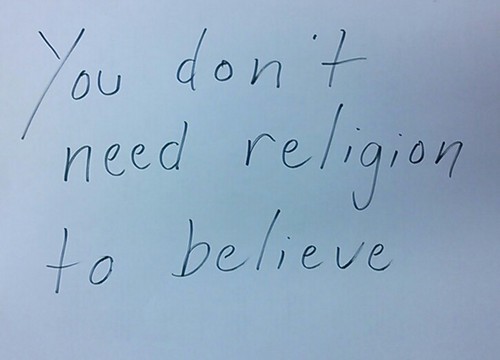 You don't
need religion
to believe